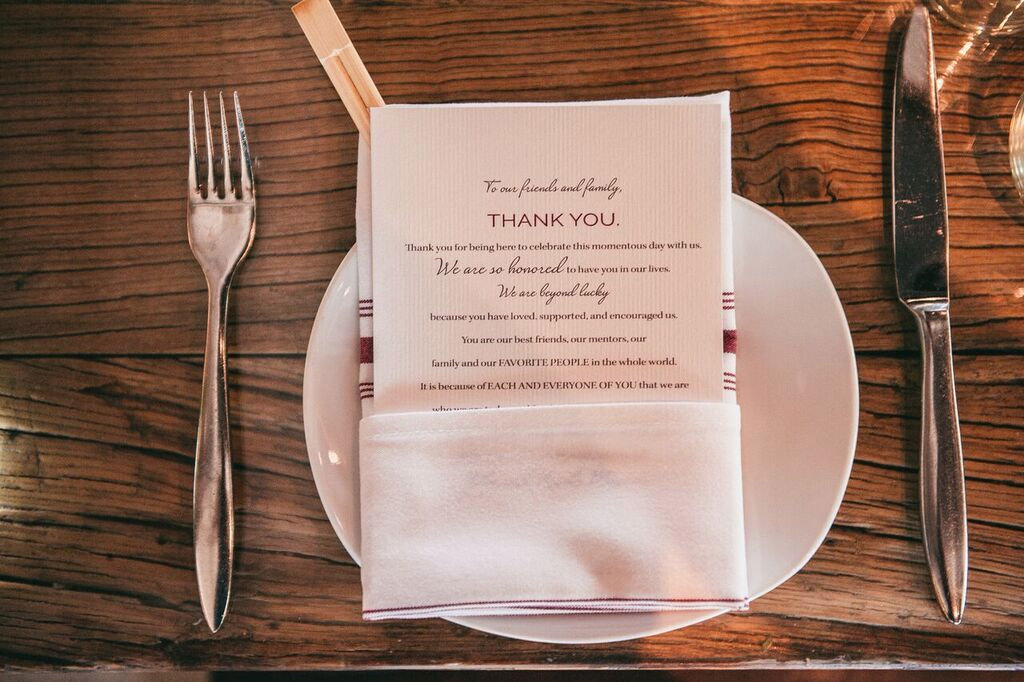 To our friends and family,
THANK YOU.
Thank you for being here to celebrate this momentous day with us.
We are so honored to have you in our lives.
We are beyond lucky
because you have loved, supported, and encouraged us.
You are our best friends, our mentors, our
family and our FAVORITE PEOPLE in the whole world.
It is because of EACH AND EVERYONE OF YOU that we are
who we are